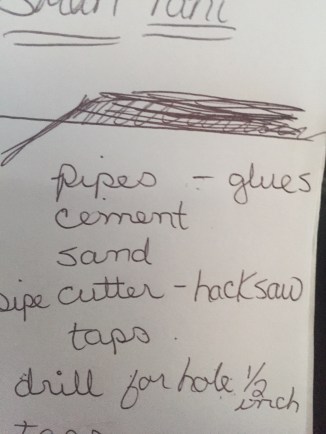 pipes - glues
cement
sand
pipe cutter - hacksaw
taps
drill for hole 1/2 inch